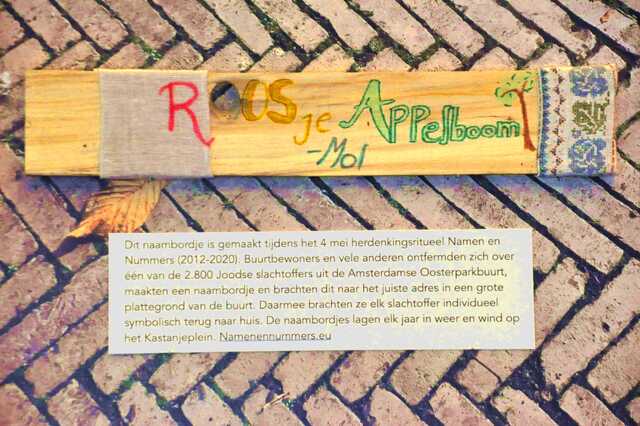 Roosje Appelboom
-Mol
Dit naambordje is gemaakt tijdens het 4 mei herdenkingsritueel Namen en
Nummers (2012-2020). Buurtbewoners en vele anderen ontfermden zich over
één van de 2.800 Joodse slachtoffers uit de Amsterdamse Oosterparkbuurt,
maakten een naambordje en brachten dit naar het juiste adres in een grote
plattegrond van de buurt. Daarmee brachten ze elk slachtoffer individueel
symbolisch terug naar huis. De naambordjes lagen elk jaar in weer en wind op
het Kastanjeplein. Namenennummers.eu